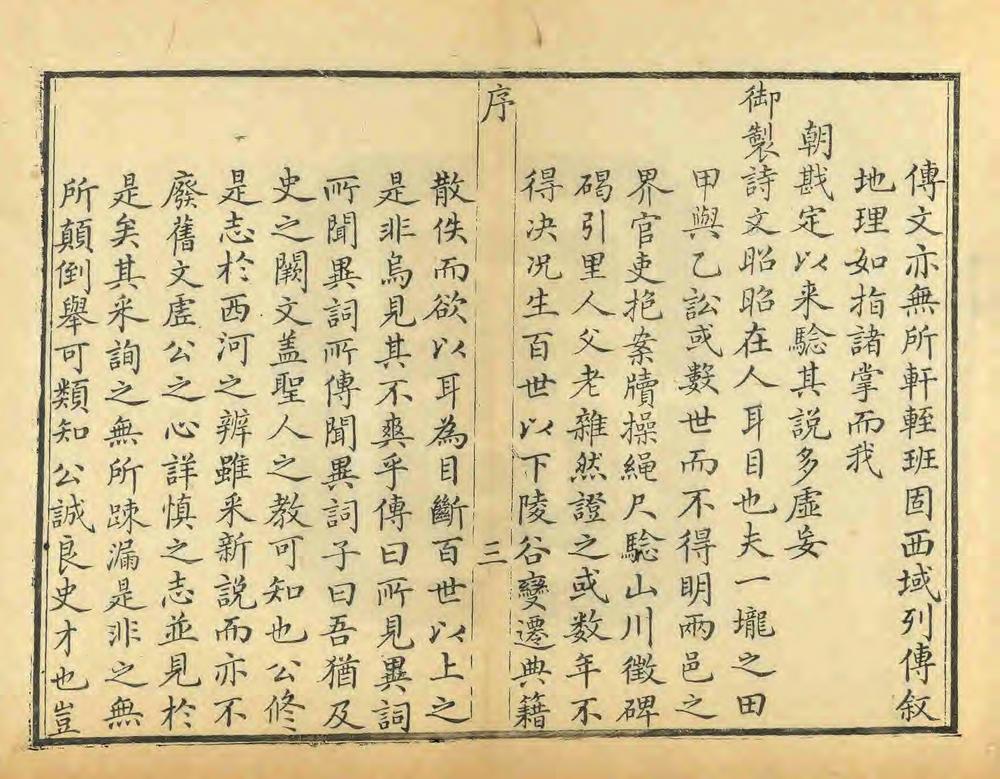 傳文亦無所軒輊班固西域列傳叙
地理如指諸掌而我
朝戡定以来驗其説多虛妄
御製詩文昭昭在人耳目也夫一壠之田
甲與乙訟或數世而不得明兩邑之
界官吏抱案牘操繩尺驗山川徵碑
碣引里人父老雜然證之或数年不
得决况生百世以下陵谷變遷典籍
序
三
散佚而欲以耳為目斷百世以上之
是非烏見其不爽乎傳曰所見異詞
所聞異詞所傳聞異詞子曰吾猶及
史之闕文盖聖人之教可知也公修
是志於西河之辨雖采新説而亦不
廢舊文虛公之心詳慎之志並見於
是矣其采詢之無所疎漏是非之無
所顛倒舉可類知公誠良史才也豈